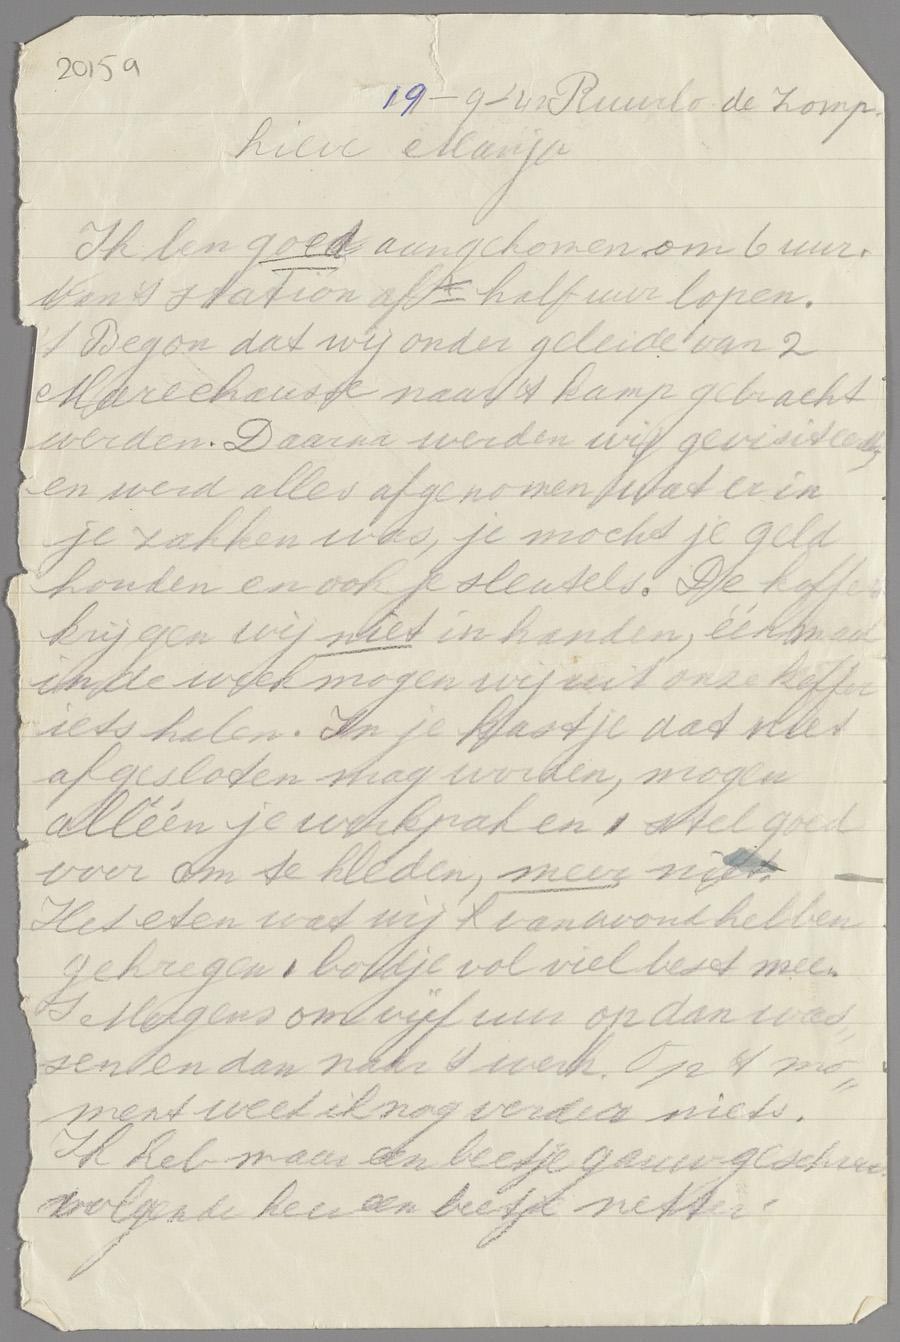 2015 a
19-9-42 Ruurlo de Zomp.
Lieve Manja
Ik ben goed aangekomen om 6 uur.
Van 't station af half uur lopen.
't Begon dat wij onder geleide van 2
Marechausse naar 't kamp gebracht
werden. Daarna werden wij gevisiteerd,
en werd alles afgenomen wat er in
je zakken was, je mocht je geld
houden en ook je sleutels. De koffer
krijgen wij niet in handen, één maal
in de week mogen wij uit onze koffer
iets halen. In je kastje dat niet
afgesloten mag worden, mogen
alléén je werkpak en 1 stel goed
voor om te kleden, meer niet.
Het eten wat wij vanavond hebben
gekregen 1 bordje vol viel best mee.
S Morgens om vijf uur op dan was„
sen en dan naar 't werk. Op 't mo„
ment weet ik nog verder niets.
Ik heb maar een beetje gauw geschrev.
volgende keer een beetje netter.